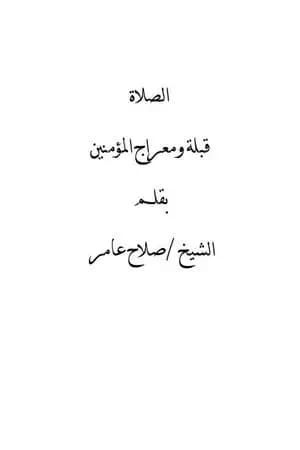 الصلاة
قبلة ومعراج المؤمنين
بقلم
الشيخ / صلاح عامر